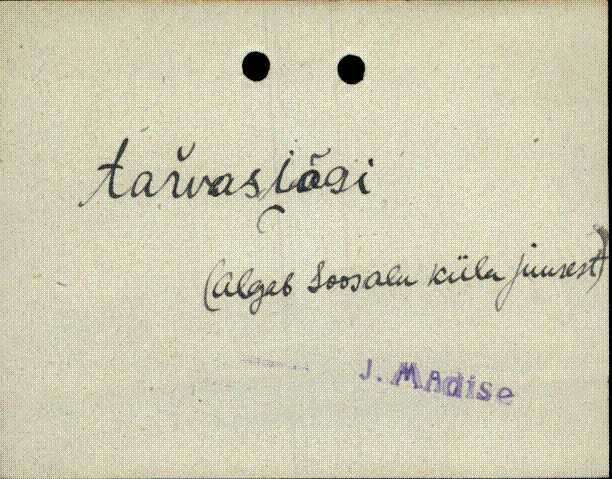 tarvasjõgi
(algab Soosalu küla juurest)
J. MAdise